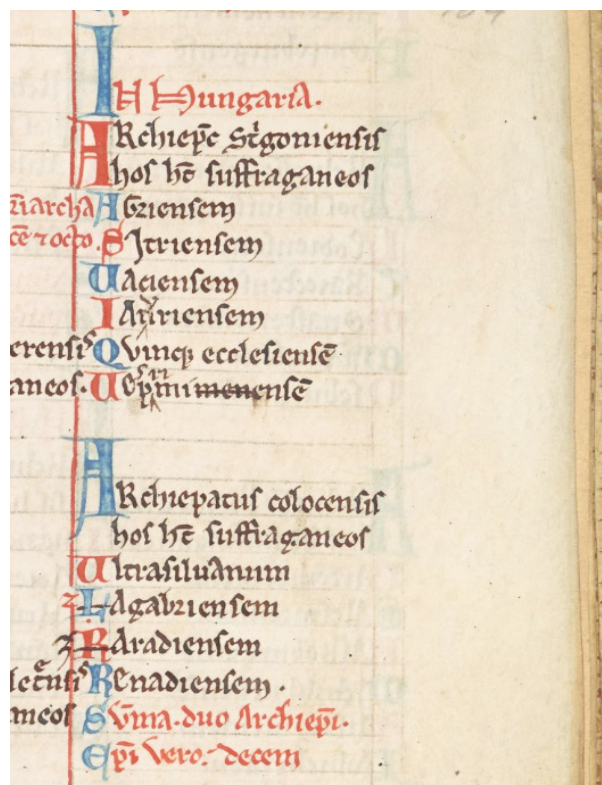 IN Hungaria.
ARchiep̄c St̓goniensis
hos ht̄ suffraganeos
AGriensem
SItriensem
UAciensem
IAuriensem
QVinq; ecclesiensē
UEspmimenensē
ARchiepatus colocensis
hos ht̄ suffraganeos
Ultrasiluanum
LAgabriensem
RAradiensem
REnadiensem.
SVm̄a. duo Archiep̄i.
Ep̄i vero. decem